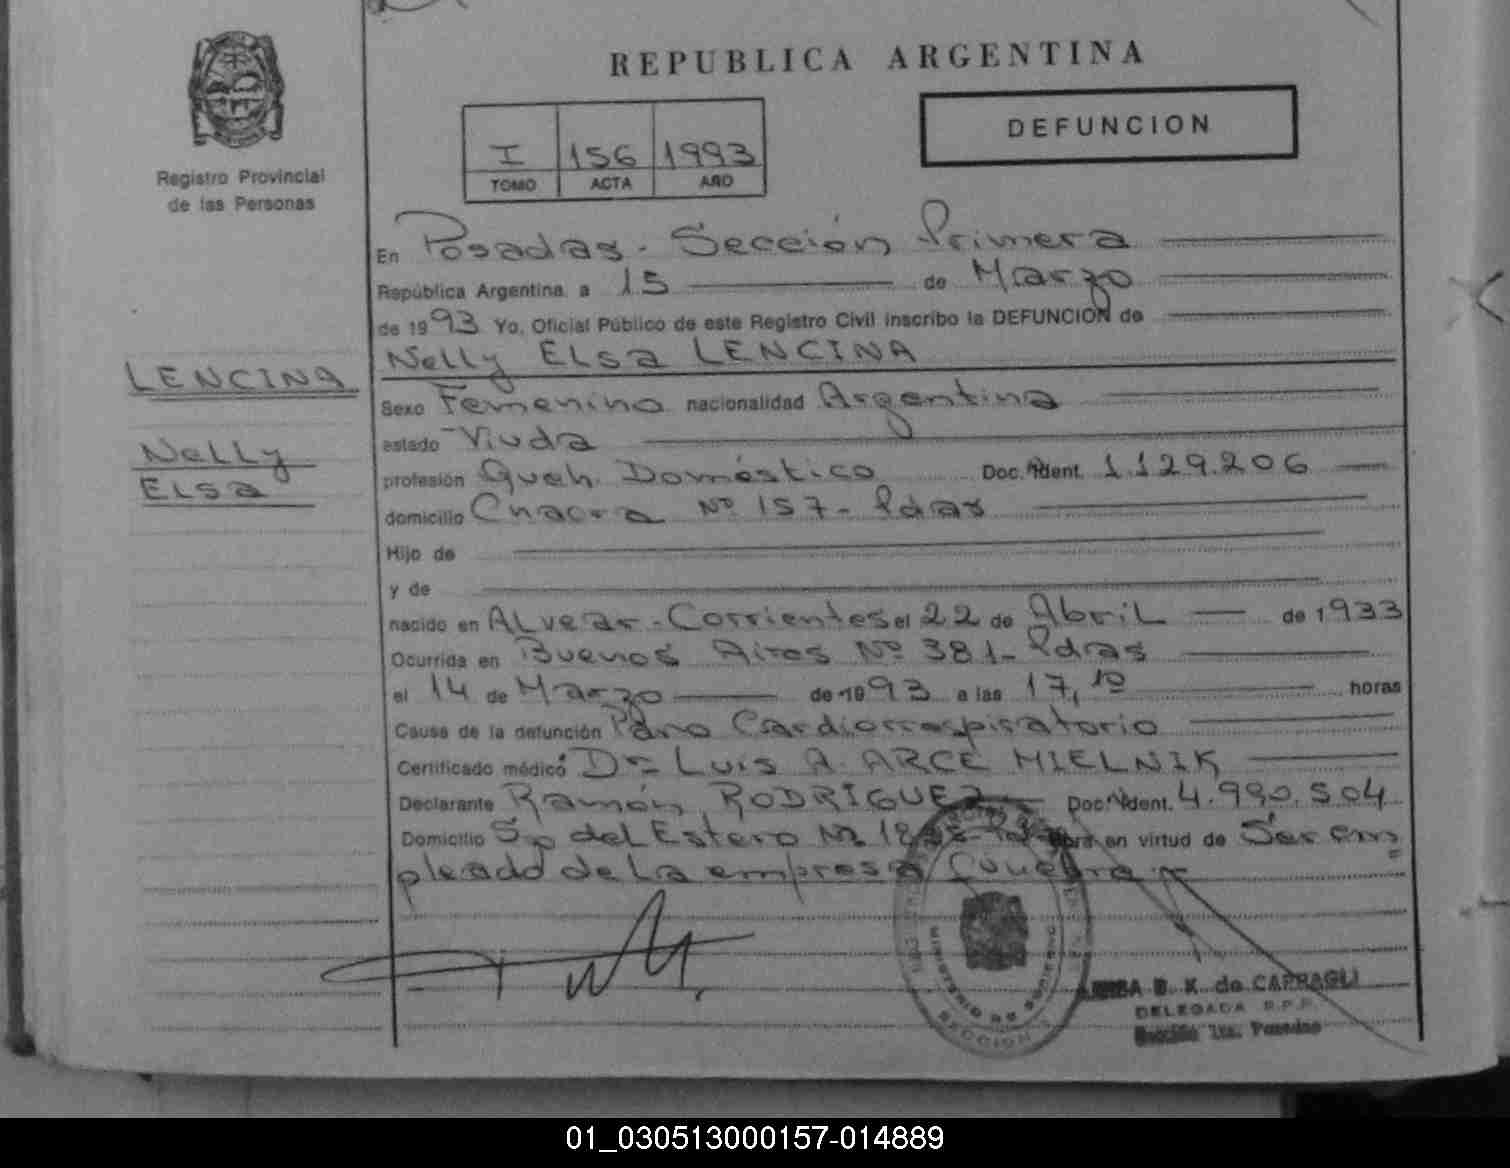 REPUBLICA ARGENTINA
DEFUNCION
I 156 1993
TOMO ACTA AÑO
Registro Provincial
de las Personas
En Posadas - Sección Primera
República Argentina, a 15 de Marzo
de 1993 Yo, Oficial Público de este Registro Civil inscribo la DEFUNCION de
Nelly ELsa LENCINA
LENCINA
Nelly
ELsa
Sexo Femenino nacionalidad Argentina
estado Viuda
profesión Queh. Doméstico Doc. Ident. 1.129.206
domicilio Chacra Nº 157 - Pdas
Hijo de
y de
nacido en ALvear - Corrientes el 22 de Abril de 1933
Ocurrida en Buenos Aires Nº 381 - Pdas
el 14 de Marzo de 1993 a las 17,10 horas
Cause de la defunción Paro Cardiorrespiratorio
Certificado médico Dr. Luis A. ARCE MIELNIK
Declarante Ramón RODRIGUEZ Doc. Ident. 4.990.504
Domicilio Sgo del Estero Nº Obra en virtud de Ser em=
pleado de la empresa fúnebre
MINISTERIO DE GOBIERNO
SECCION
B. K. de CAPRAGLI
DELEGADA R.P.P.
Sección 1ra. Posadas
01_030513000157-014889